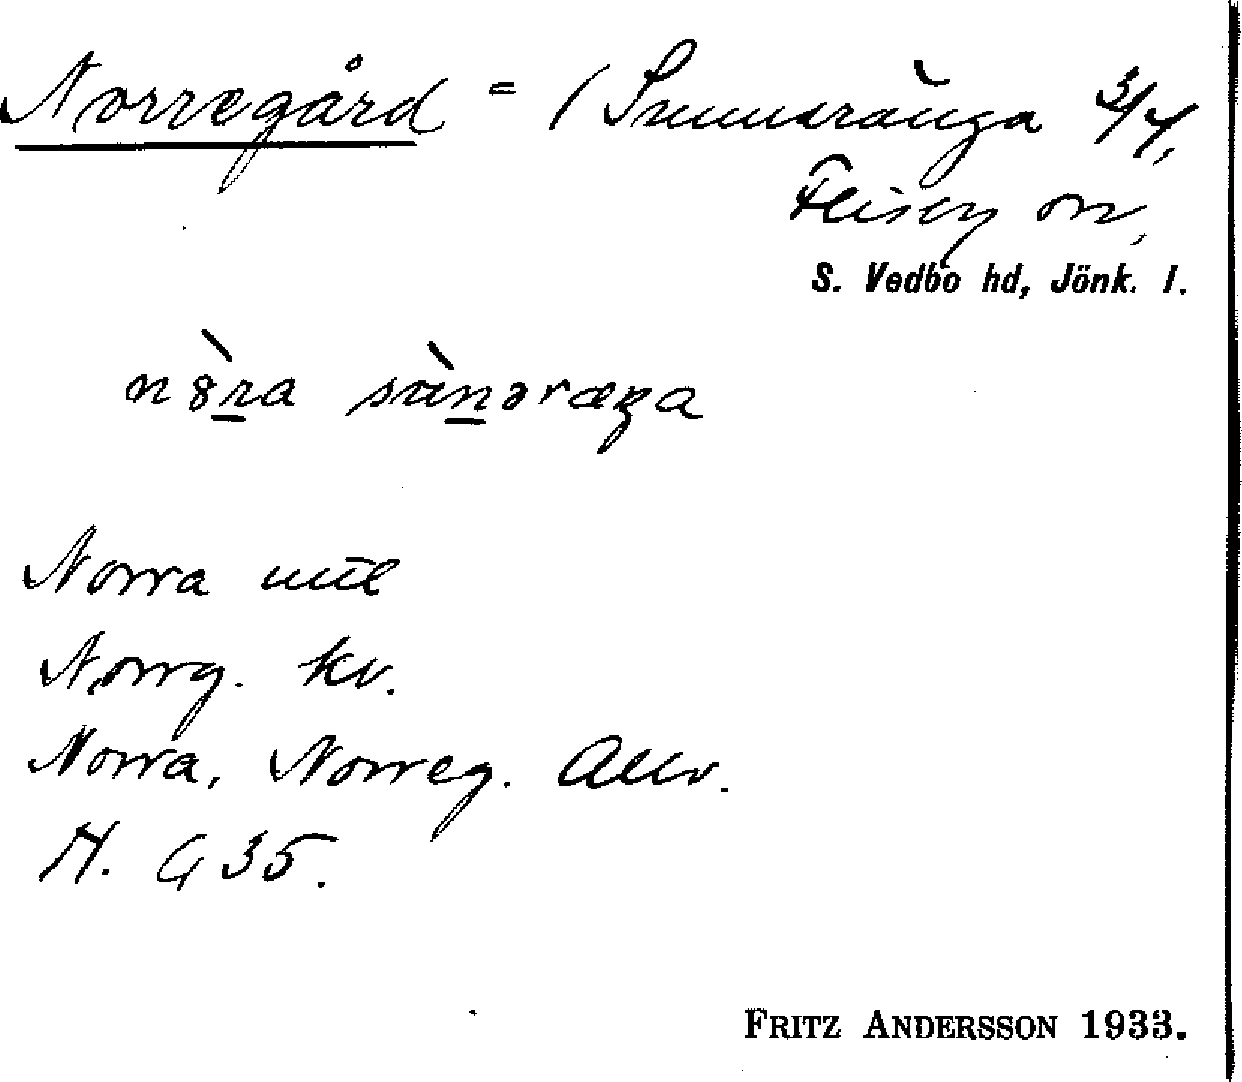 Norregård = (Sunneränga 3/4,
Flisby sn,
S. Vedbo hd, Jönk. l.
Norra mtl
Norrg. kv.
Norra, Norreg. Allv.
N. G 35.
FRITZ ANDERSSON 1933.